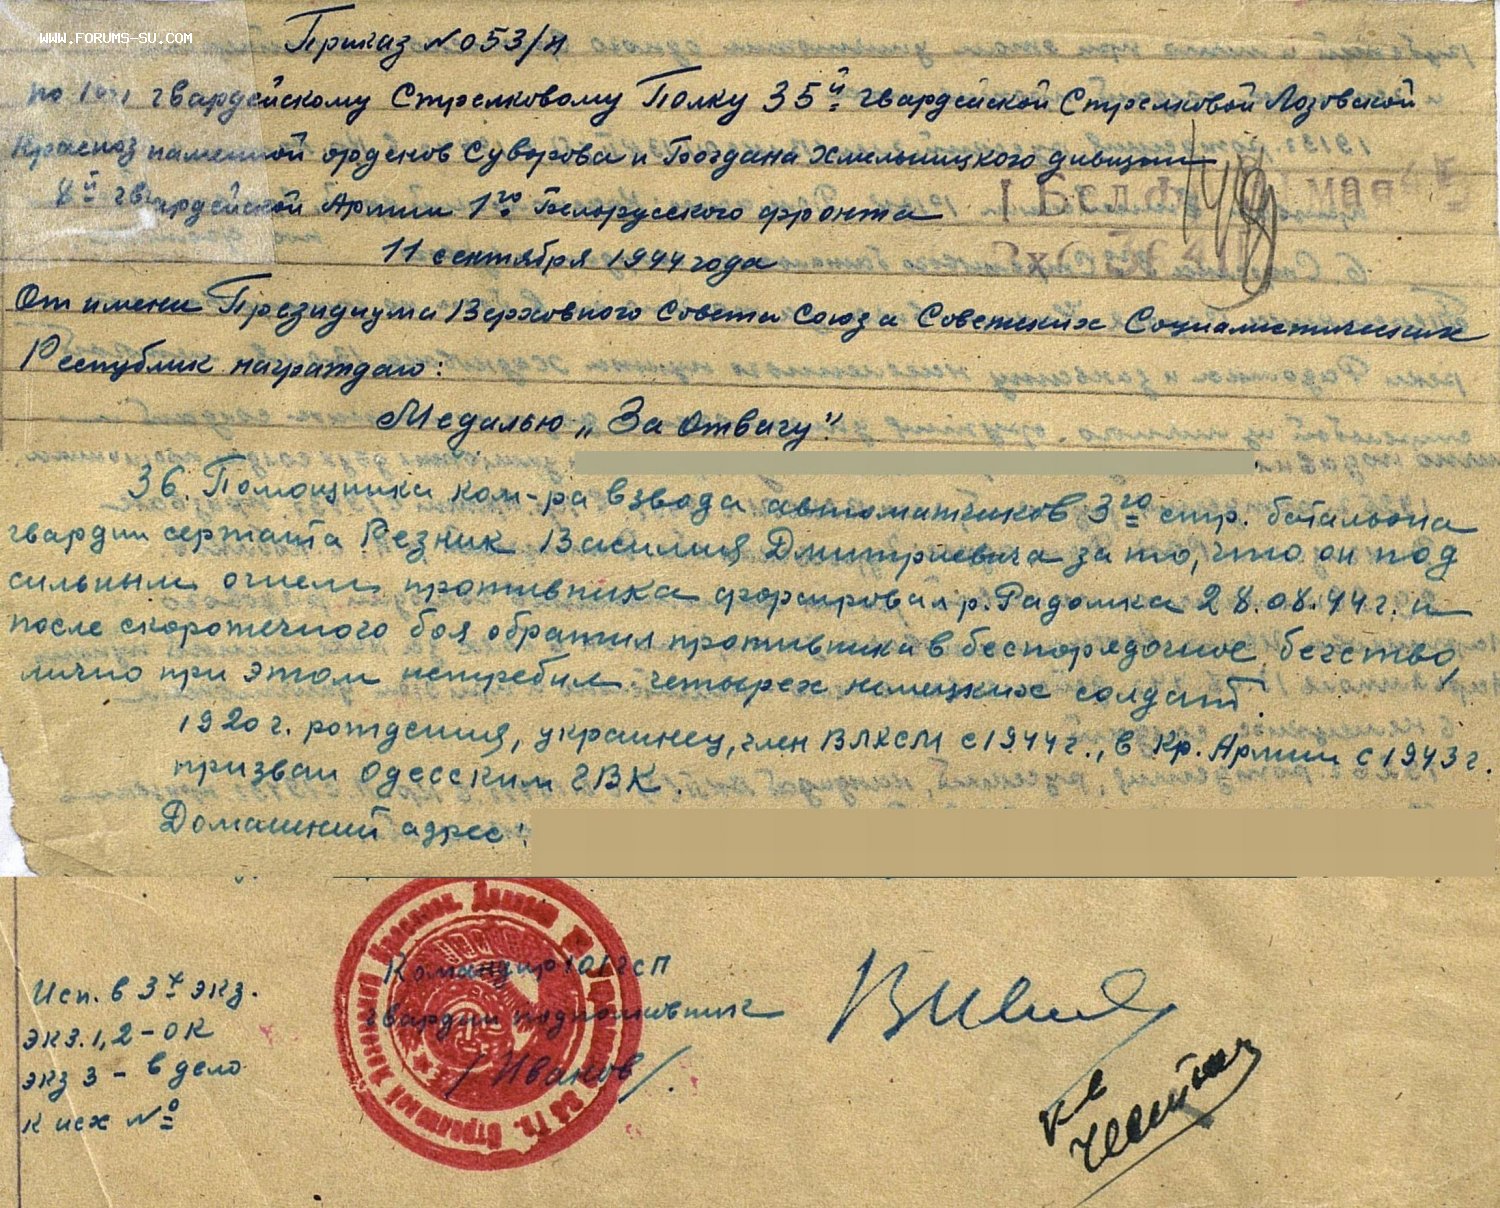 www.forums-su.com
Приказ №053/н
по 101 гвардейскому Стрелковому Полку 35й гвардейской Стрелковой Лозовской
Краснознаменной орденов Суворова и Богдана Хмельницкого дивизии
8й гвардейской Армии 1го Белорусского фронта
11 сентября 1944 года
От имени Президиума Верховного Совета Союза Советских Социалистических
Республик награждаю:
Медалью „За отвагу"
36. Помощника ком-ра взвода автоматчиков 3го стр. батальона
гвардии сержанта Резник Василия Дмитриевича за то, что он под
сильным огнем противника форсировал р. Радомка 28.08.44г. и
после скоротечного боя обратил противника в беспорядочное бегство,
лично при этом истребил четырех немецких солдат.
1920 г. рождения, украинец, член ВЛКСМ с 1944г., в Кр. Армии с 1943г.
призван Одесским ГВК.
Домашний адрес:
Командир 101 гсп
гвардии подполковник
/Иванов/.
Исп. в 3х экз.
экз. 1,2 - ОК
экз 3 - в дело
к исх №